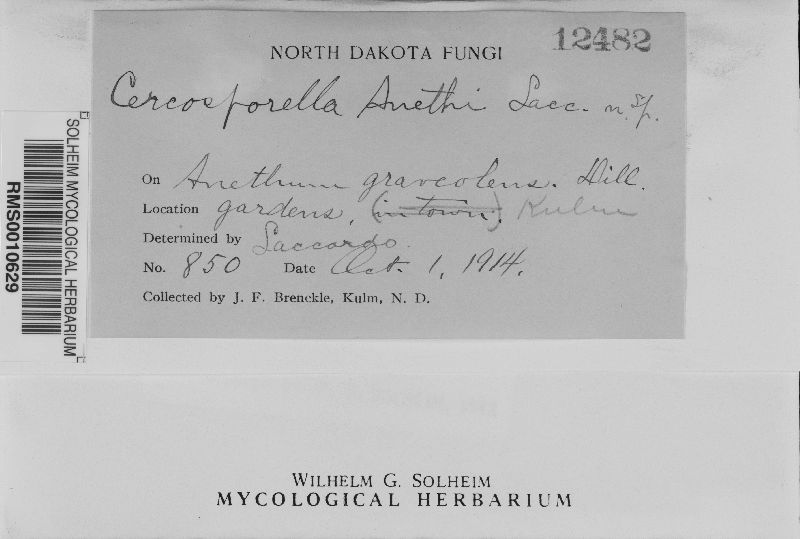 12482
NORTH DAKOTA FUNGI
Cercosporella Anethi Sacc. n. sp.
On Anethum graveolens. Dill.
Location gardens, (in town). Kulm
Determined by Saccardo.
No. 850 Date Oct. 1, 1914.
Collected by J. F. Brenckle, Kulm, N. D.
SOLHEIM MYCOLOGICAL HERBARIUM
RMS0010629
WILHELM G. SOLHEIM
MYCOLOGICAL HERBARIUM